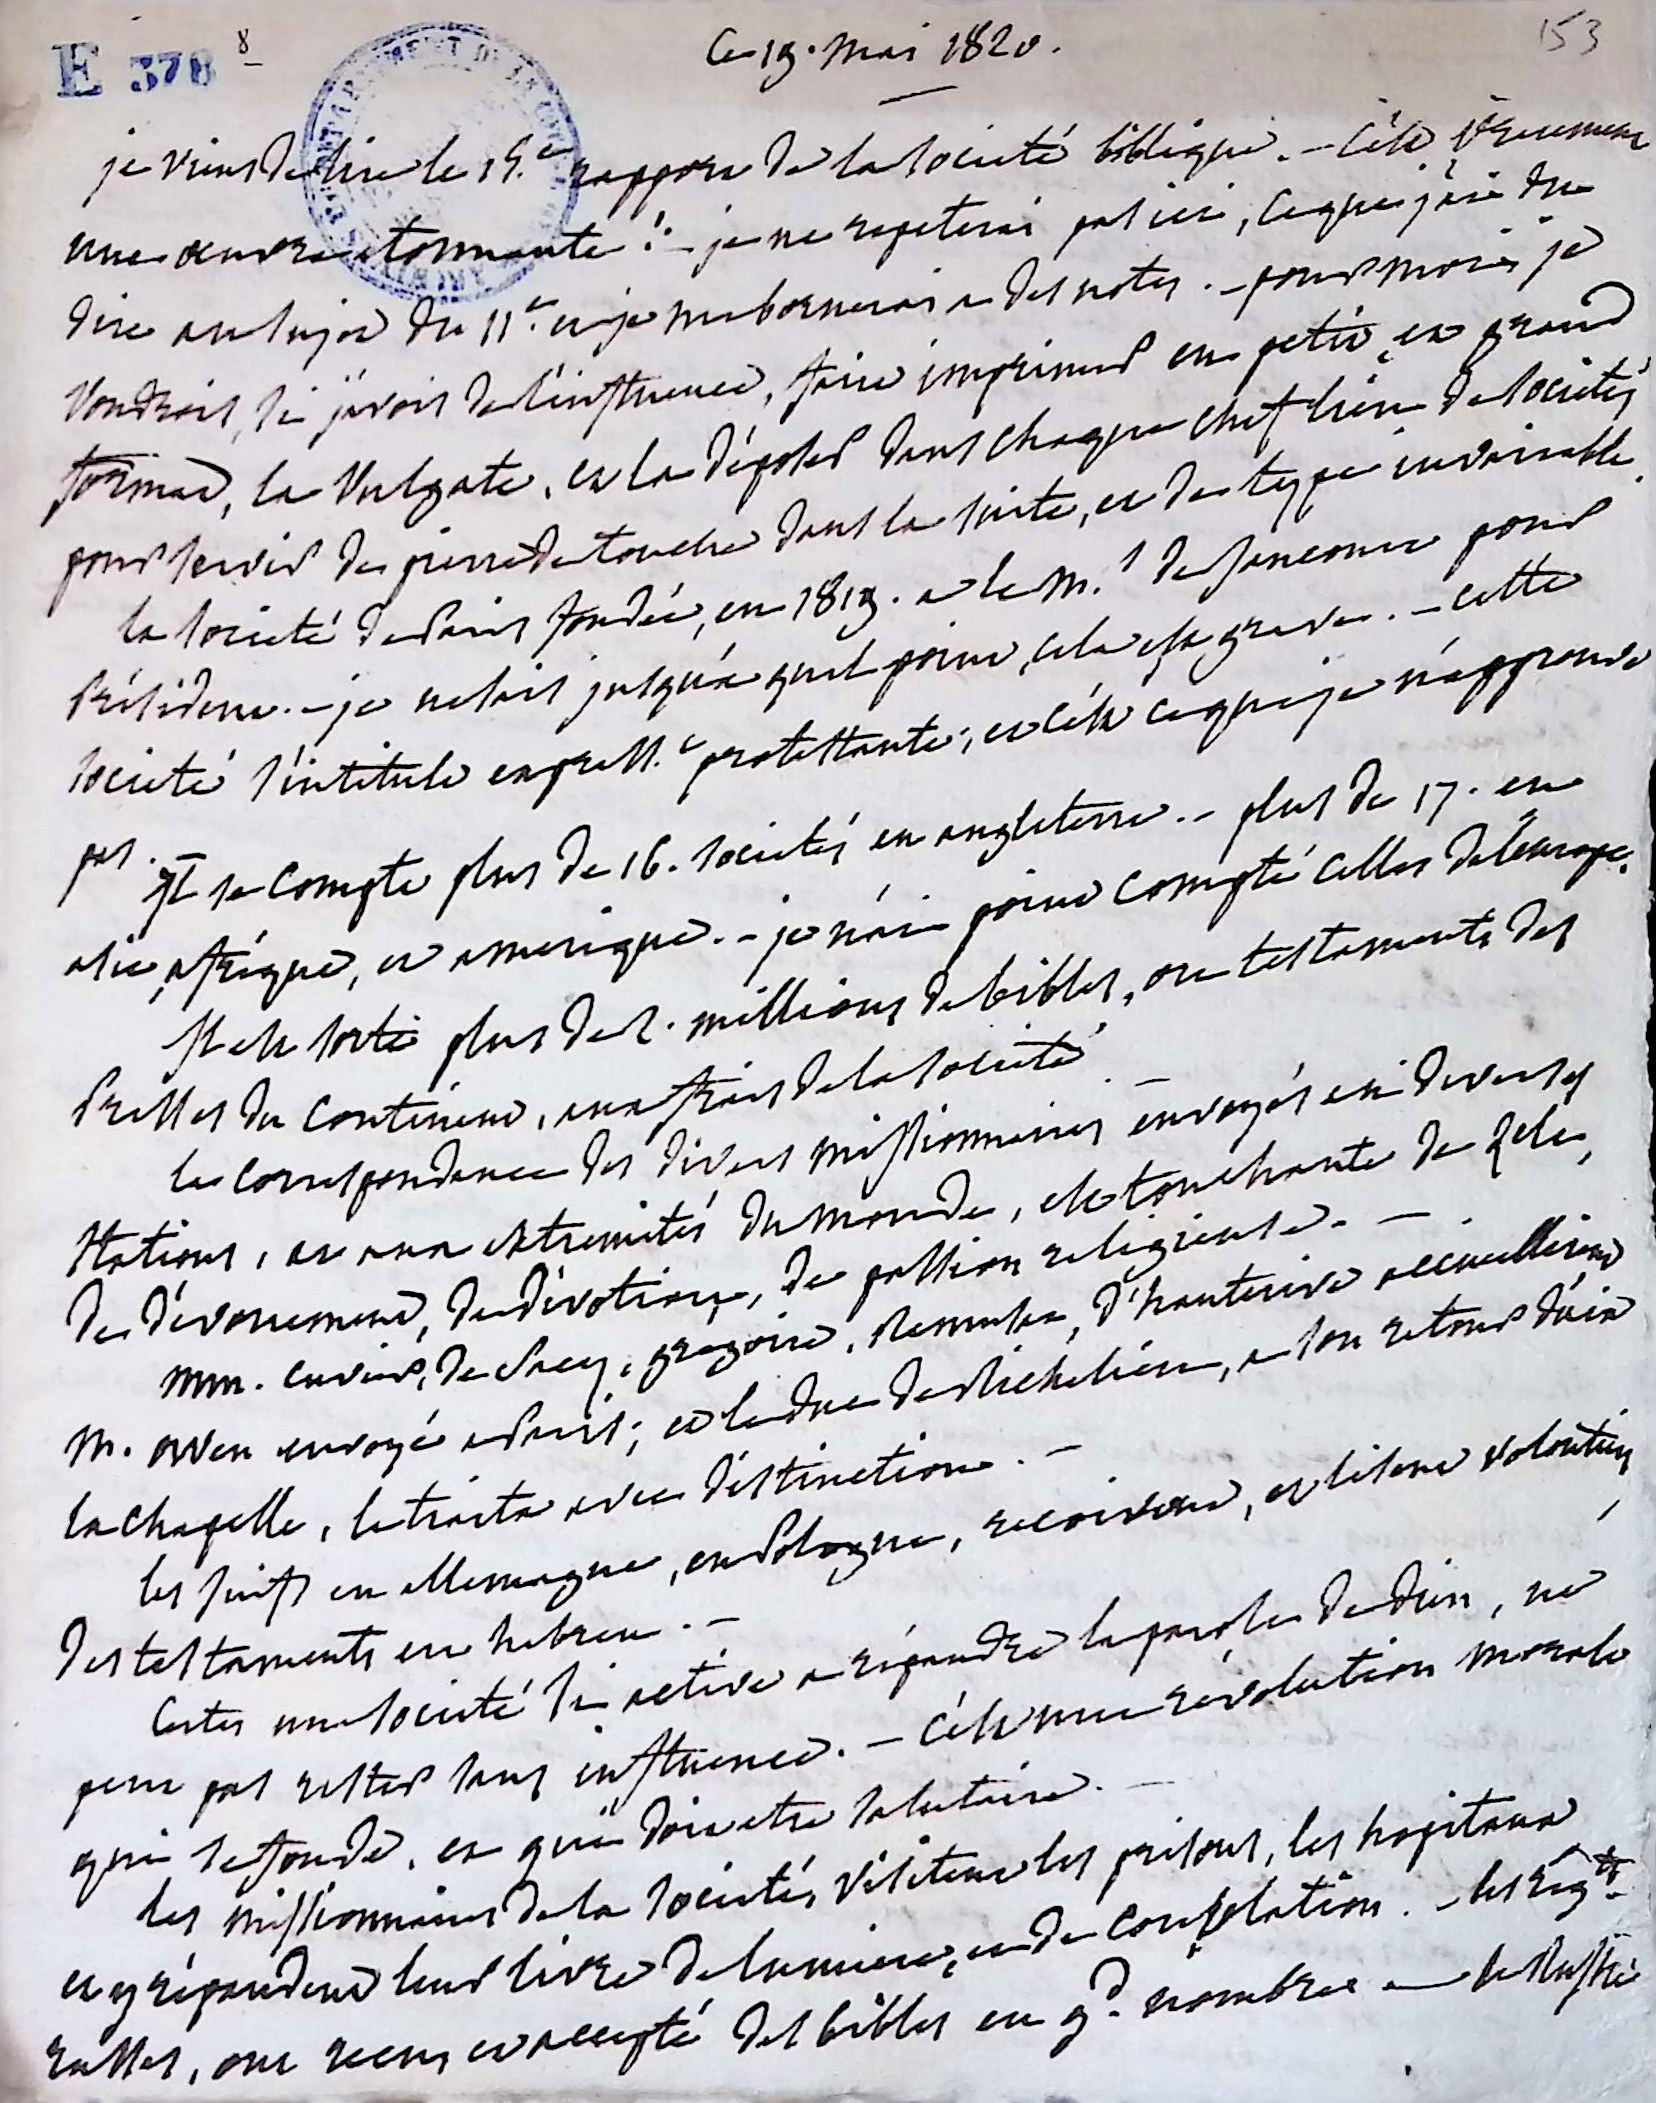 E 378 8
153
Ce 19. mai 1820.
je viens de lire le 15.e rapport de la société biblique. - c'est vraiment
une oeuvre etonnante! - je ne repeterai pas ici, ce que j'ai du
dire au sujet du 11.e et je me bornerai a des notes. - pour moi je
voudrois, si j'avois de l'influence, faire imprimer en petit, et grand
format, la Vulgate, et la déposer dans chaque chef lieu de sociétés
pour servir de pierre de touche dans la suite, et de type invariable.
la société de Paris fondée, en 1819. a le M.s de Jaucourt pour
Président. - je ne sais jusqu'a quel point, cela est grave. - cette
société s'intitule express.t protestante; et c'est ce que je n'approuve
pas. -
Il se compte plus de 16. sociétés en angleterre. - plus de 17. en
asie, afrique, et amerique. - je n'ai point compté celles de l'europe.
Il est sorti plus de 2. millions de bibles, ou testaments des
Presses du continent, aux frais de la société. -
la correspondance des divers missionnaires envoyés en diverses
stations, et aux extremités du monde, est touchante de zele,
de dévouement, de dévotion, de passion religieuse. -
mm. cuvier, de Sacy, gregoire, Remusat, d'hauterive accueillirent
M. owen envoyé a Paris; et le duc de Richelieu, a son retour d'aix
la chapelle, le traita avec distinction. -
les juifs en allemagne, en Pologne, recoivent, et lisent volontiers,
des testaments en hebreu. -
Certes une société si active a répandre la parole de dieu, ne
peut pas rester sans influence. - c'est une révolution morale
qui se fonde, et qui doit etre salutaire. -
les missionnaires de la société, visitent les prisons, les hopitaux
et y répandent leur livre de lumiere, et de consolation. - les rég.ts
russes, ont recus et accepté des bibles en g.d nombre - la Russie